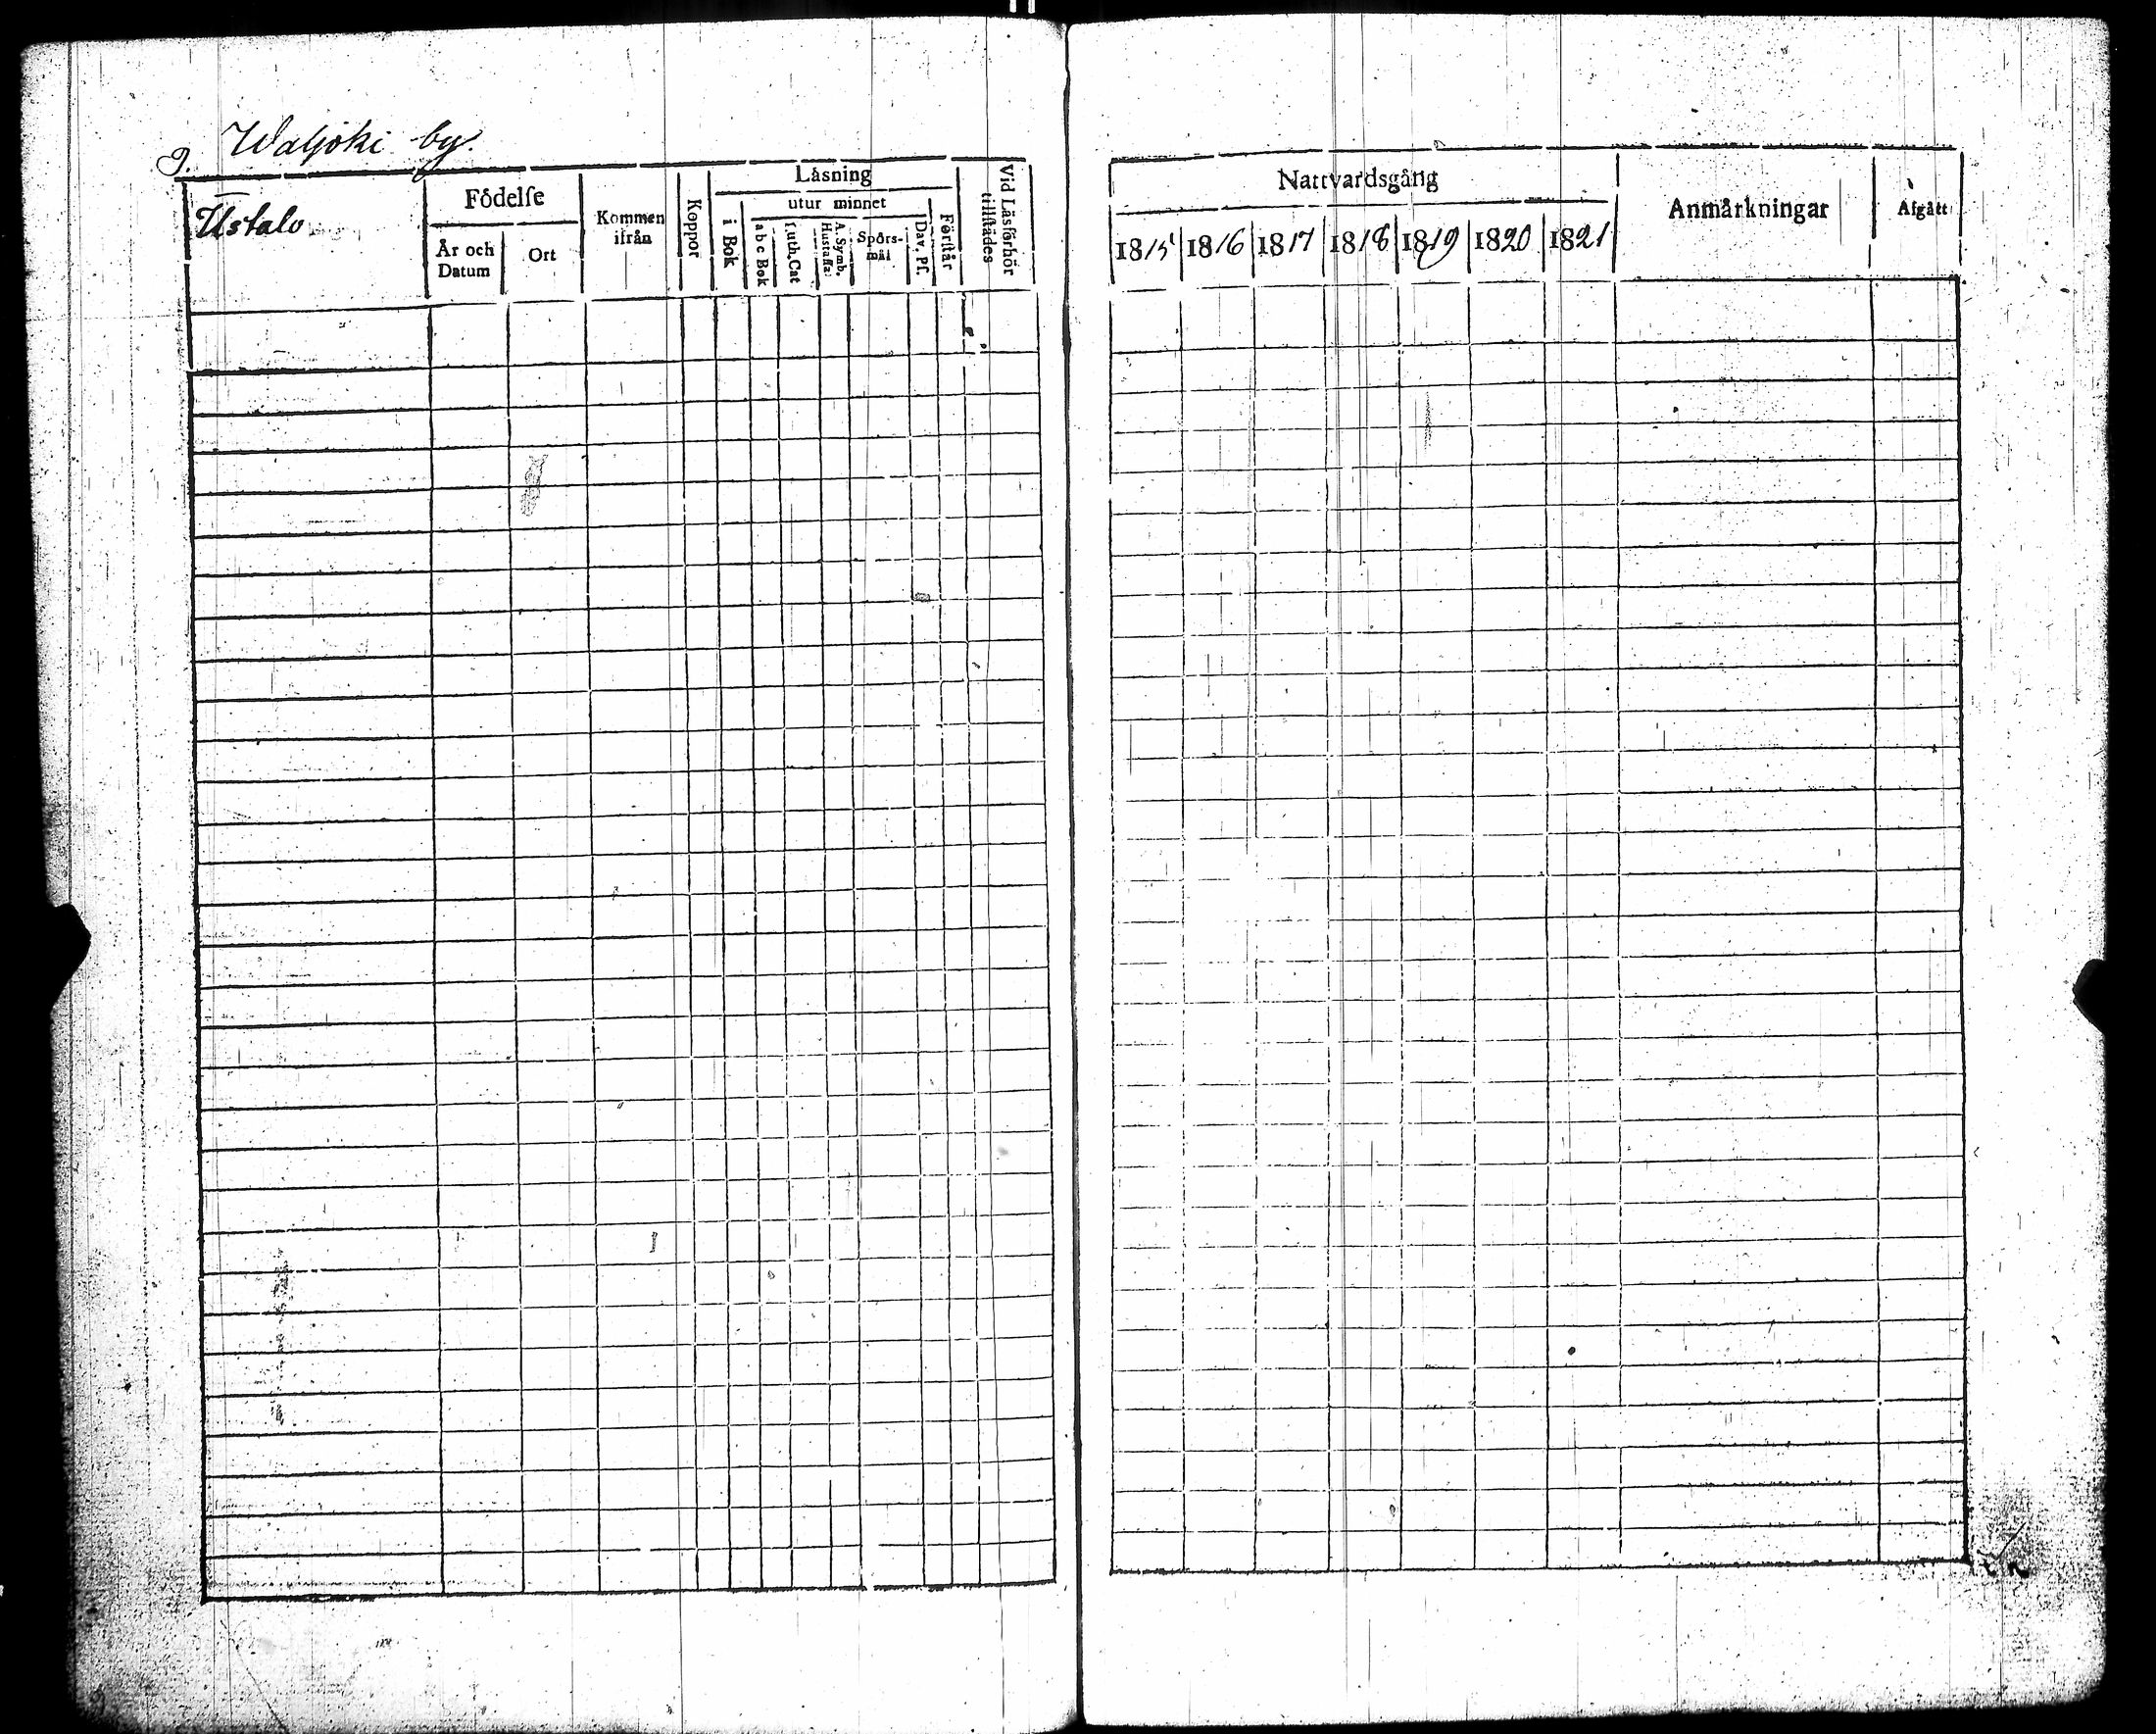 9. Waljoki by
Ustalo
Födelse
År och Datum
Ort
Kommen ifrån
Koppor
Läsning
i Bok
utur minnet
a b c Bok
Luth. Cat
A. Symb. Hustafla
Spörs-mål
Dav. Ps.
Förstår
Vid Läsförhör tillstädes
Nattvardsgång
1815 1816 1817 1818 1819 1820 1821
Anmärkningar
Afgått